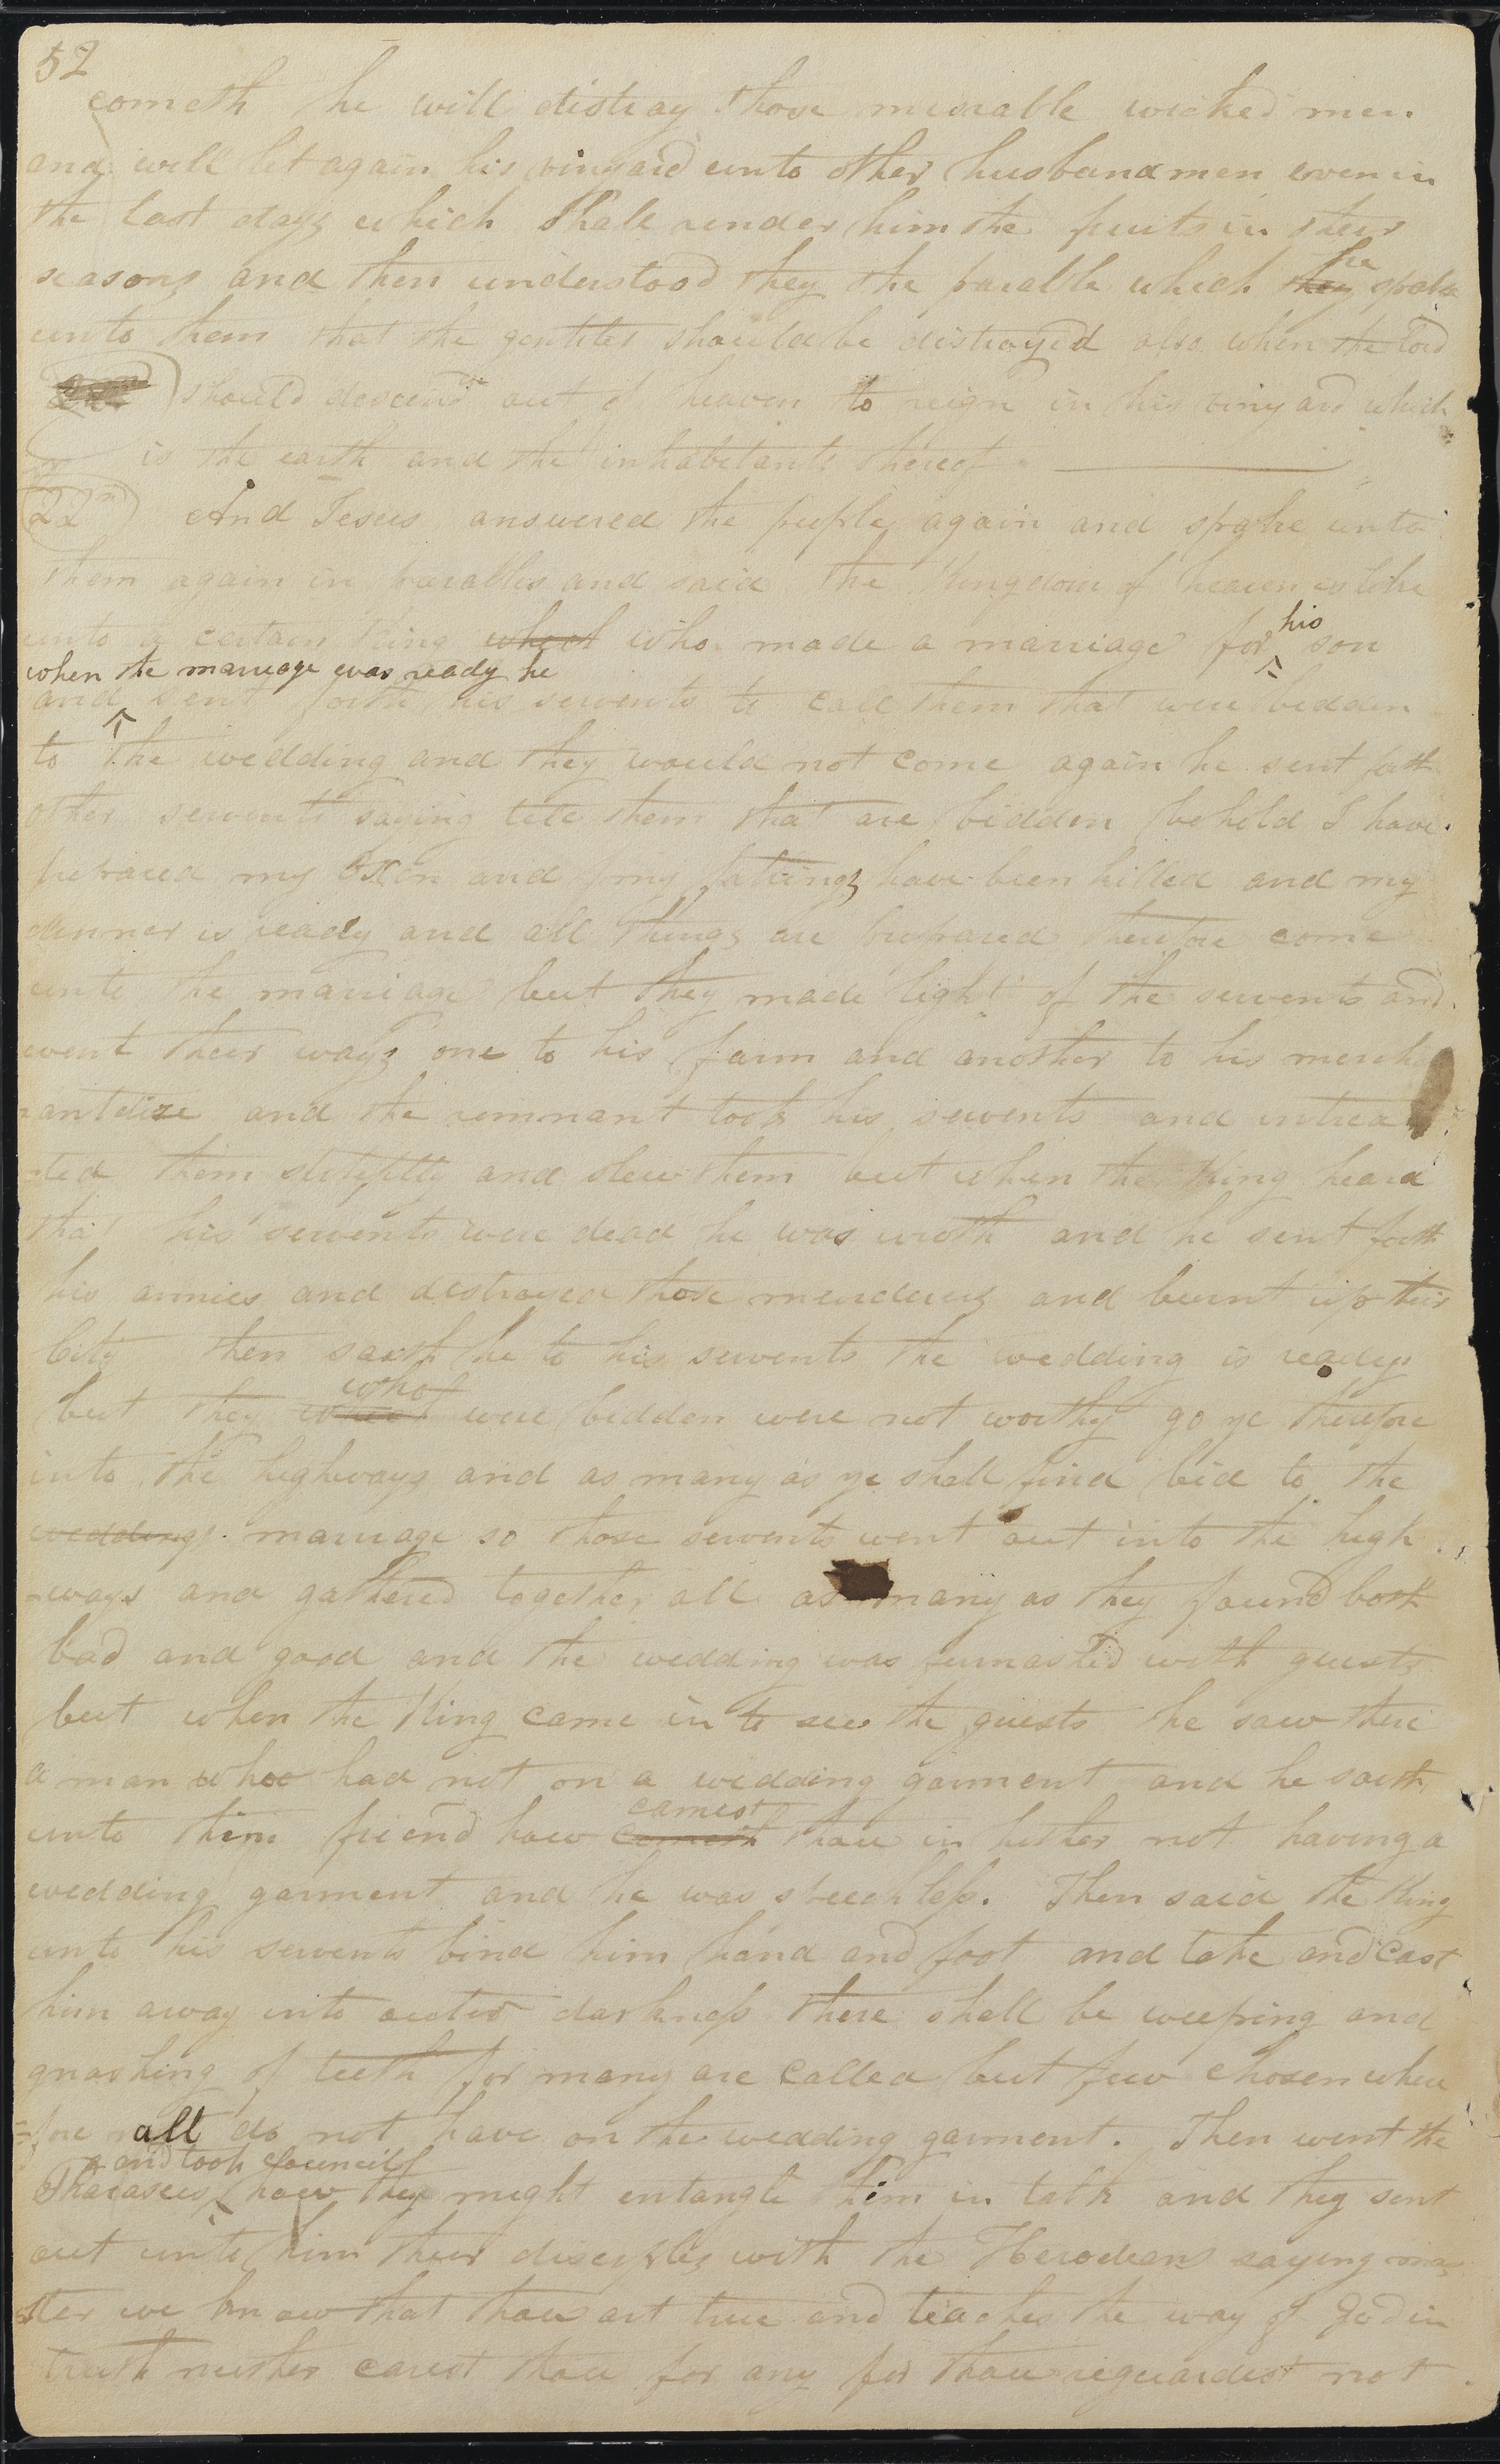 52
cometh he will distroy those miserable wicked men
and will let again his vinyard unto other husbandmen even in
the last days which shall render him the fruits in their
seasons and then understood they the parable which they he spake
unto them that the gentiles should be distroyed also when the lord
should descend out of heaven to reign in his vinyard which
is the earth and the inhabitants thereof
22nd And Jesus answered the people again and spake unto
them again in parables and said the Kingdom of heaven is like
unto a certain King who made a marriage for his son
when the marriage was ready he
and sent forth his servents to call them that were bidden
to the wedding and they would not come again he sent forth
other servents saying tell them that are bidden behold I have
prepared my Oxen and my fatlings have been killed and my
dinner is ready and all things are prepared therefore come
unto the marriage but they made light of the servents and
went their ways one to his farm and another to his merch
antdize and the remnant took his servents and intrea
ted them and slew them but when the King heard
that his servents were dead he was wroth and he sent forth
his armies and destroyed those murderers and burnt up their
City then saith he to his servents the wedding is ready
who
but they were bidden were not worthy go ye therefore
into the highways and as many as ye shall find bid to the
wedding marriage so those servents went out into the high
-ways and gathered together all as many as they found both
bad and good and the wedding was furnashed with guests
but when the King came in to see the guests he saw there
a man who had not on a wedding garment and he saith
camest
unto him friend how thou in hither not having a
wedding garment and he was speechless. Then said the King
unto his servents bind him hand and foot and take and cast
him away into outer darkness there shall be weeping and
gnashing of teeth for many are called but few chosen where
=fore all do not have on the wedding garment. Then went the
and took Councill
Pharasees how they might entangle him in talk and they sent
out unto him their disciples with the Herodians saying ma
ster we know that thou art true and teaches the way of God in
truth neither carest thou for any for thou reguardest not